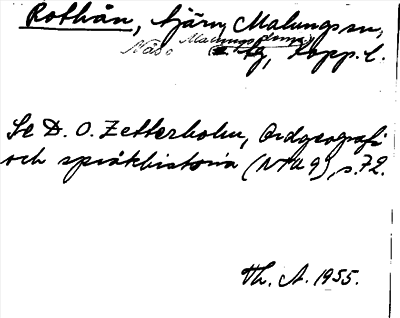 Rothån, tjärn, Malungs sn,
Malungs
Näs tg, Kopp. l.
Se D. O. Zetterholm, Ordgeografi
och språkhistoria (NTU 9), s. 72.
Th. A. 1955.